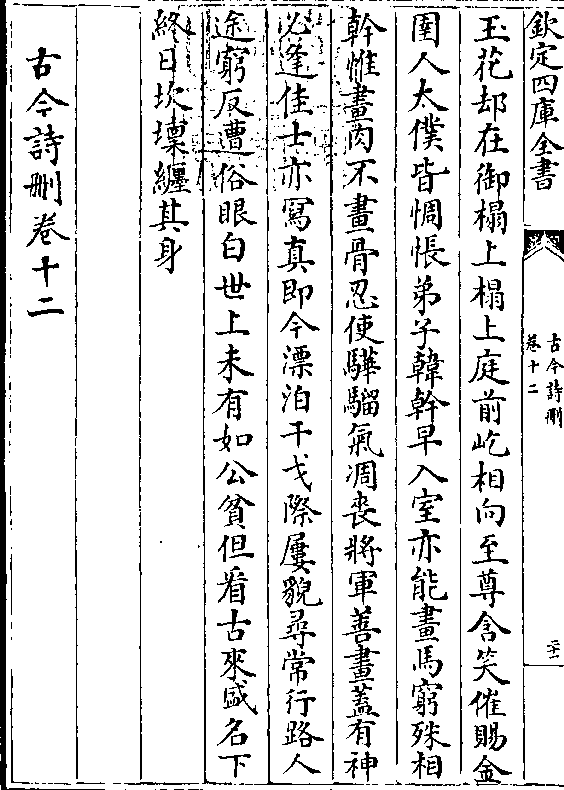 欽定四庫全書
古今詩刪
卷十二
二十一
玉花却在御榻上榻上庭前屹相向至尊含笑催賜金
圉人太僕皆惆悵弟子韓幹早入室亦能畫馬窮殊相
幹惟畫肉不畫骨忍使驊騮氣凋喪將軍善畫蓋有神
必逢佳士亦寫真即今漂泊干戈際屢貌尋常行路人
途窮反遭俗眼白世上未有如公貧但看古來盛名下
終日坎壈纏其身
古今詩刪卷十二